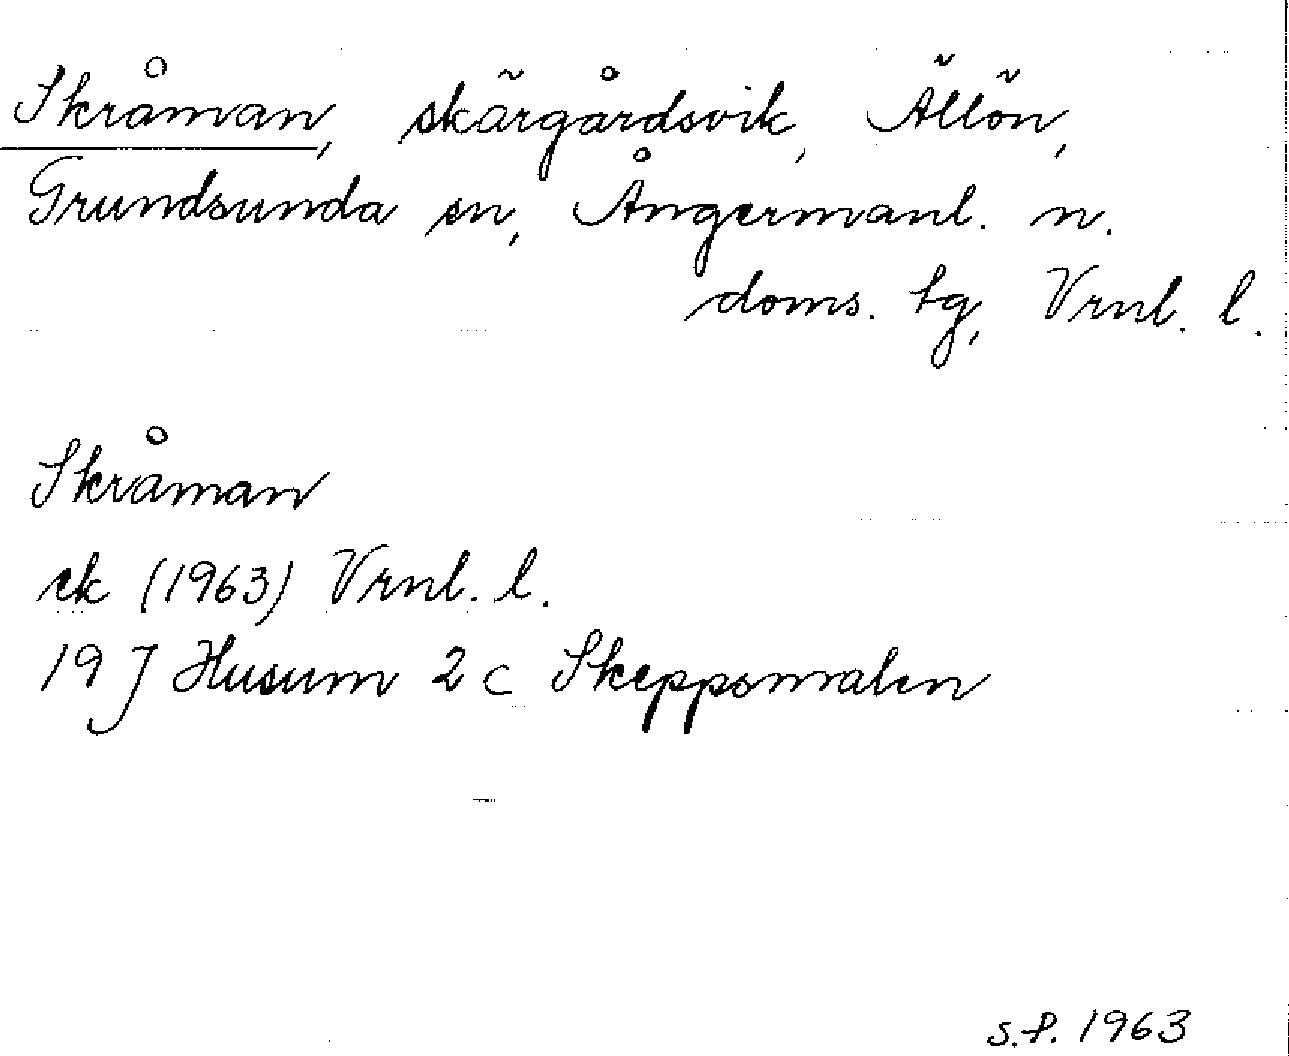 Skråman, skärgårdsvik, Ällön,
Grundsunda sn, Ångermanl. n.
doms. tg, Vrnl. l.
Skråman
ek (1963) Vrnl. l.
19 J Husum 2 c Skeppsmalen
S.P. 1963